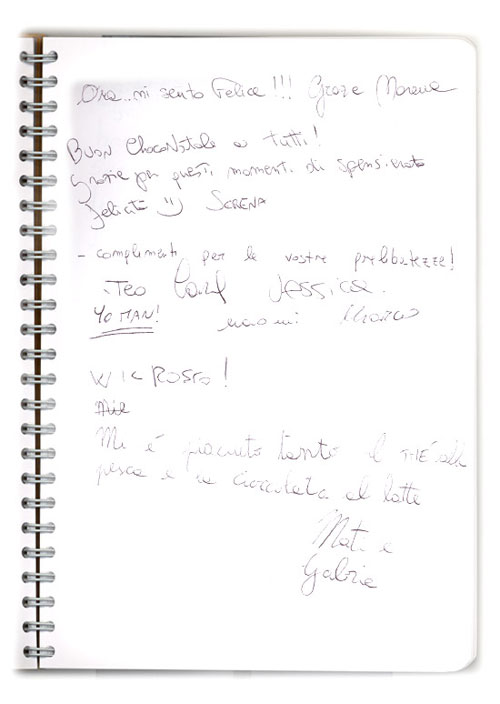 Ora.. mi sento Felice!!! Grazie Morena
BUON ChocoNatale a TUTTI!
Grazie per questi momenti di spensierata
felicità :) SERENA
- complimenti per le vostre prelibatezze!
TEO JESSICA
YO MAN! Marco
W IL ROSSO!
Mi è piaciuto tanto il THÈ alla
pesca e la cioccolata al latte
Mati e
Gabrie